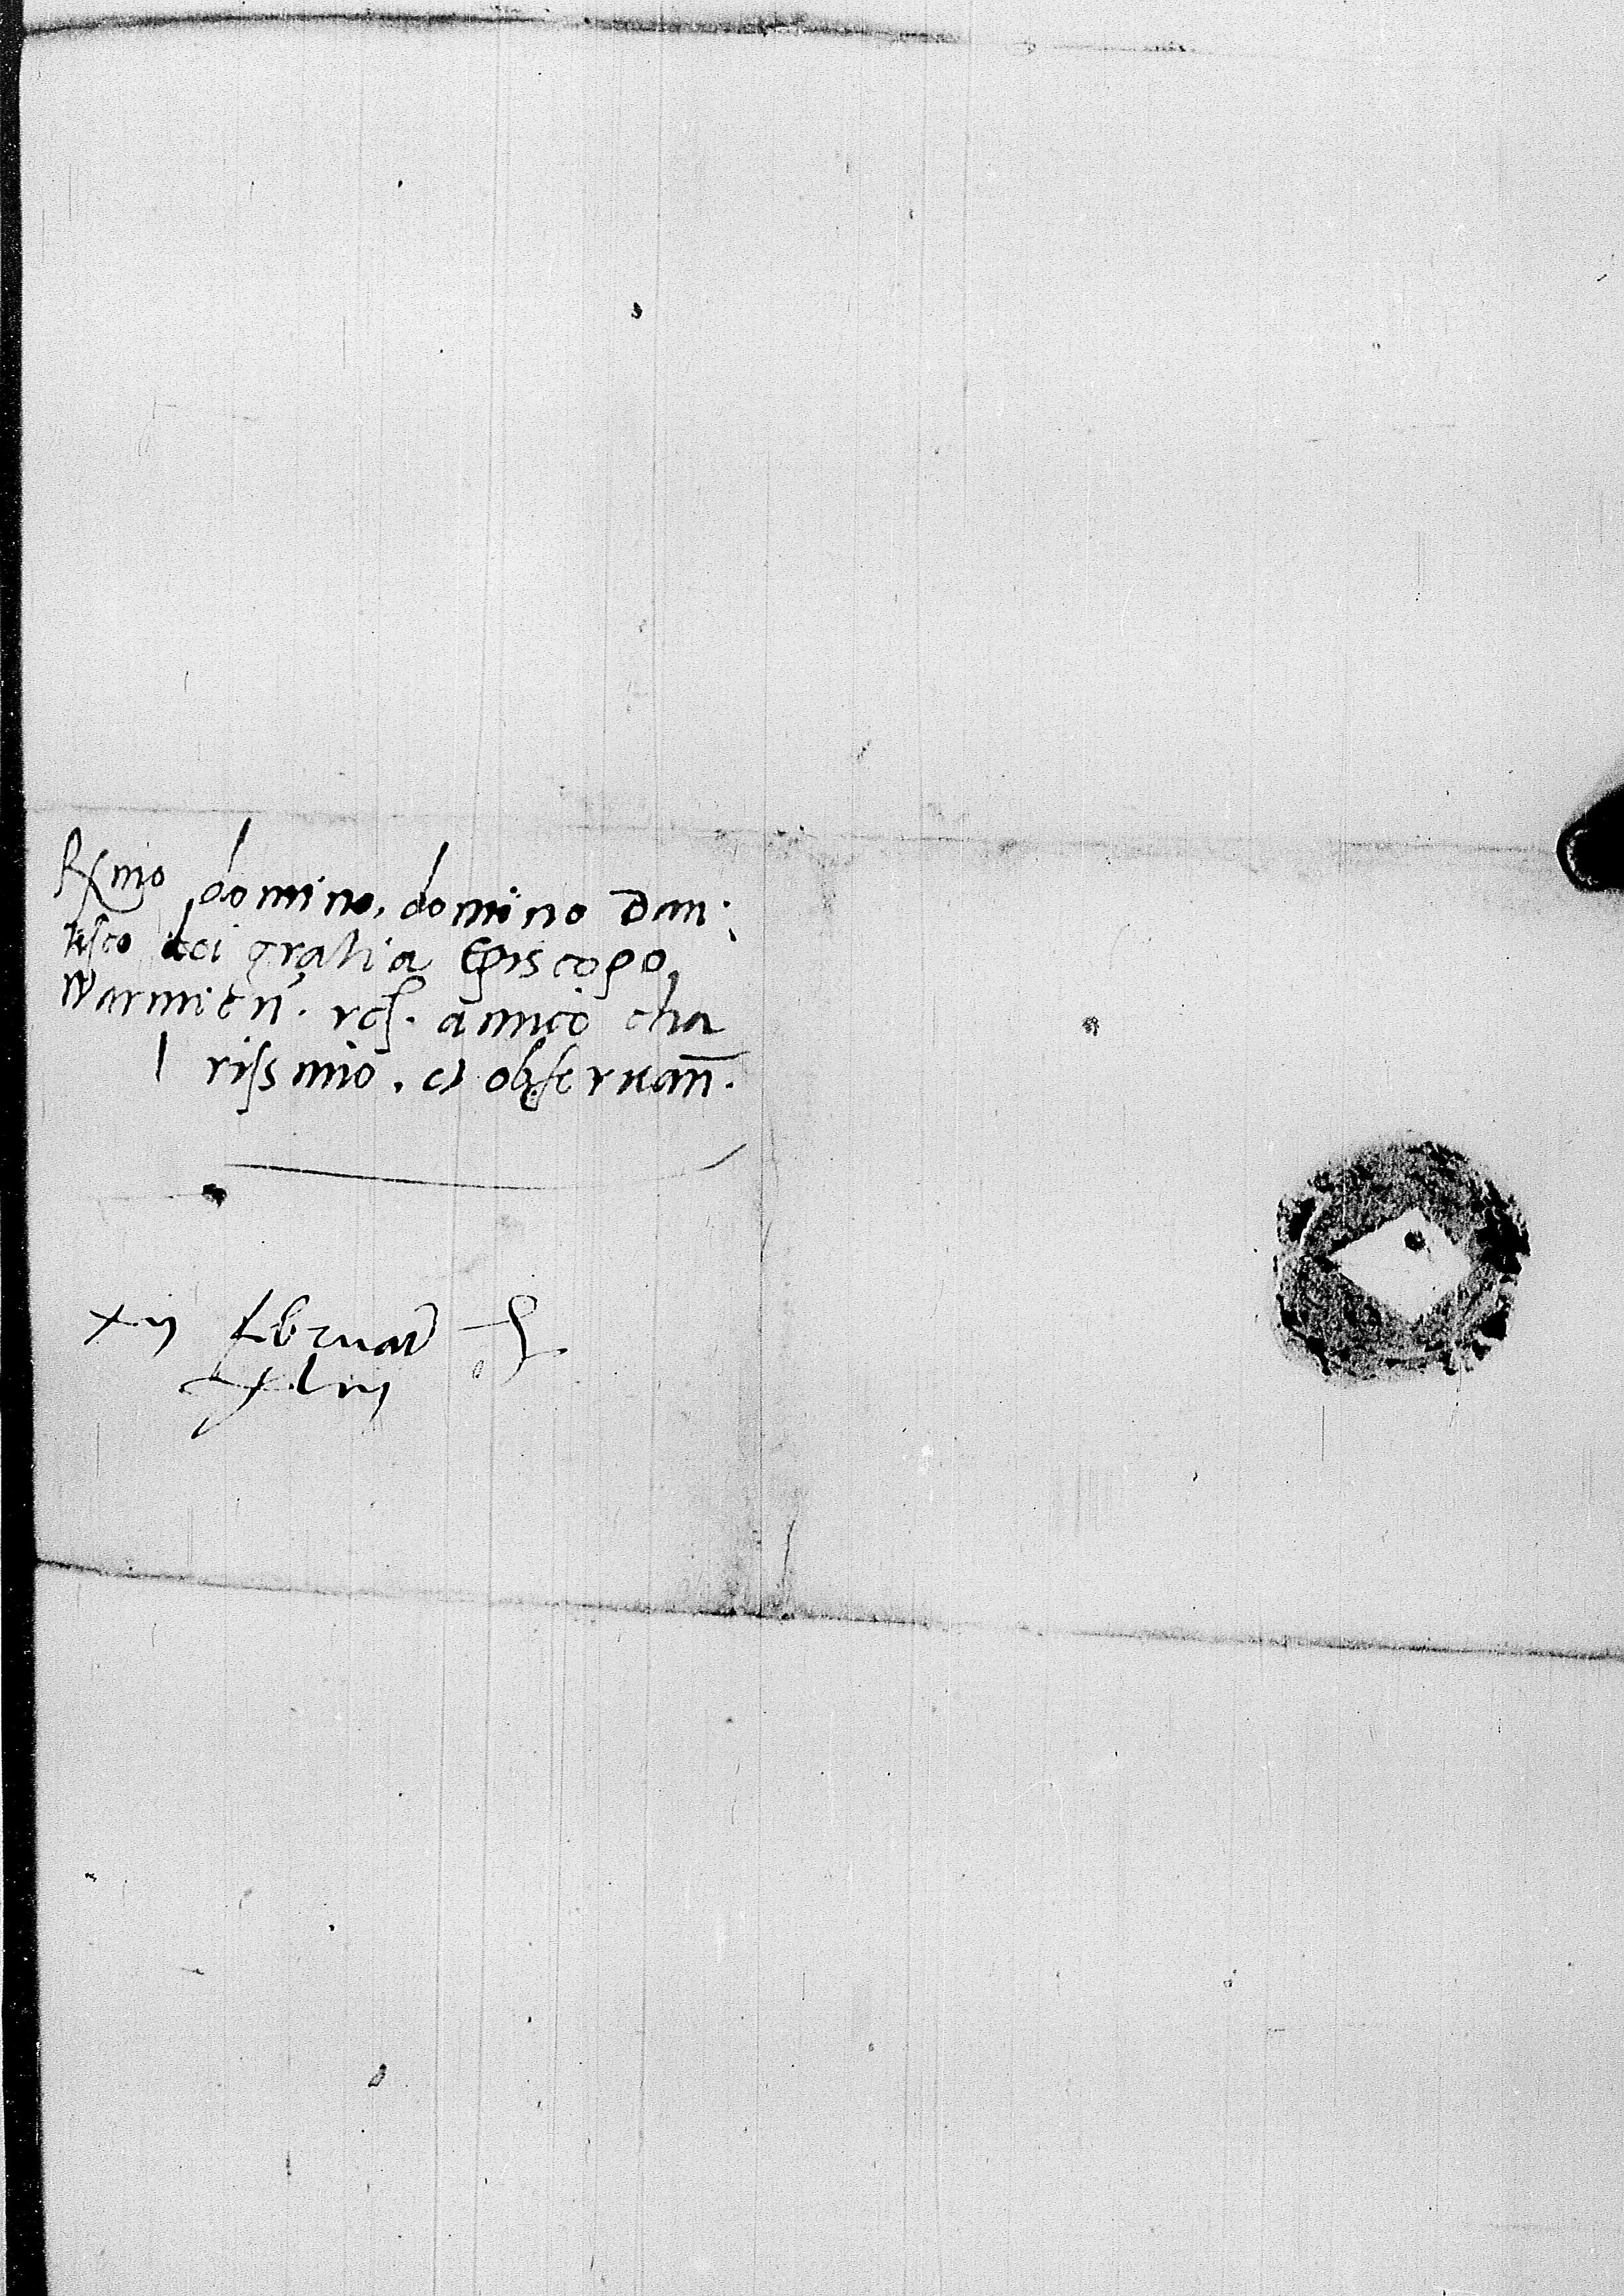 Rxmo domino, domino Dan:
tisco dei gratia Episcopo
Warmien. rcs. amico cha
rissimo. et obseruan.
xij februar
xliij